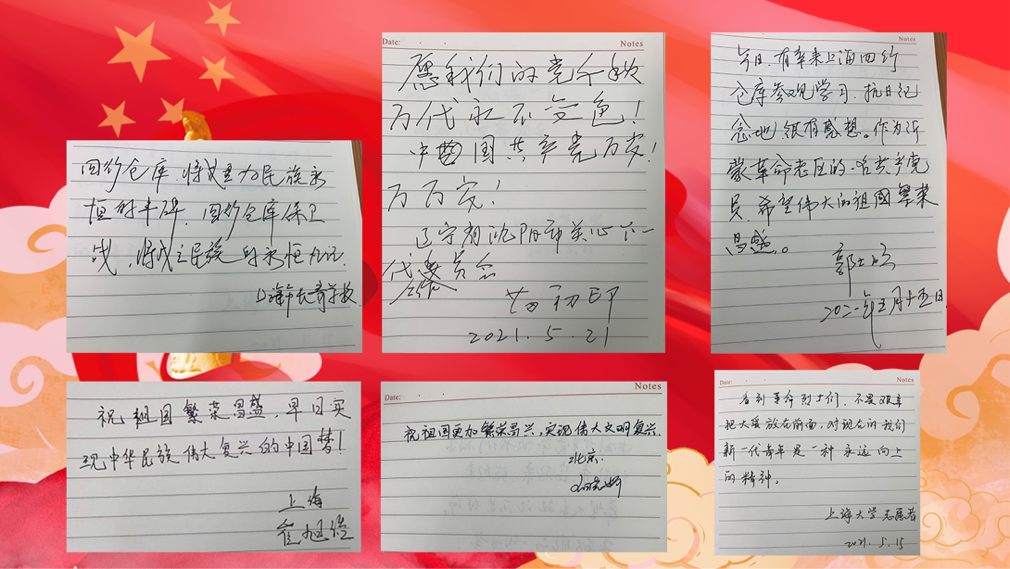 四行仓库，将成为民族永
恒的丰碑，四行仓库保卫
战，将成为民族的永恒
上海市长青学校
Date:
Notes
愿我们的党千秋
万代永不变色！
中国共产党万岁！
万万岁！
辽宁省沈阳市关心下一
代委员会
初印
2021.5.21
Notes
今日有幸来上海四行
仓库参观学习，抗日纪
念地很有感想。作为沂
蒙革命老区的一名共产党
员，希望伟大的祖國繁荣
昌盛。
郭
二〇二一年五月十五日
祝祖国繁荣昌盛，早日实
现中华民族伟大复兴的中国梦！
上海
崔旭
Notes
Date:
祝祖国更加繁荣昌兴，实现伟大文明复兴
北京：
Date:
Notes
看到革命烈士们，不畏艰辛
把大爱放在前面，对现在的我们
新一代青年是一种永远向上
的精神。
上海大学志愿者
2021.5.15